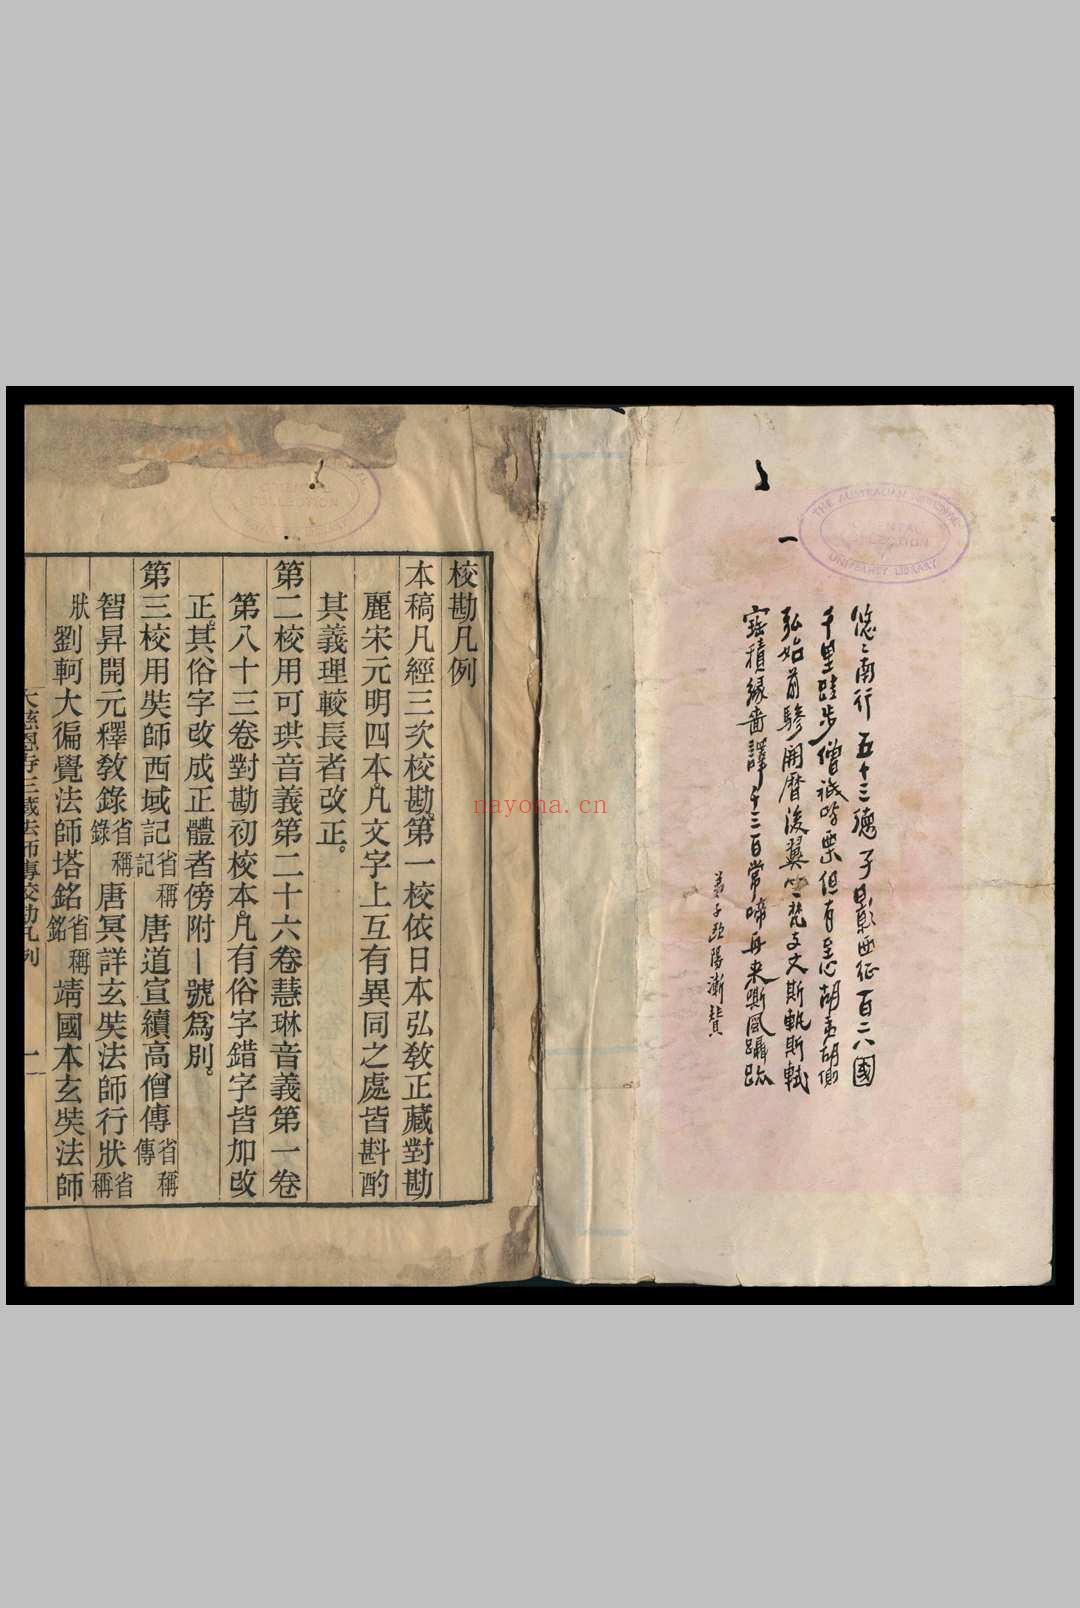 一
悠〻南行五十三德子影西征百二八國
千里跬步僧祇吟
但有
胡
胡
弘始前驂開曆後翼
梵
文斯軌斯軾
寶積緣
譯千三百常啼再來
風躡跡
弟子歐陽漸贊
THE AUSTRALIAN NATIONAL
ORIENTAL
COLLECTION
UNIVERSITY LIBRARY
校勘凡例
本稿凡經三次校勘。第一校依日本弘教正藏對勘
麗宋元明四本。凡文字上互有異同之處皆斟酌
其義理較長者改正。
第二校用可珙音義第二十六卷慧琳音義第一卷
第八十三卷對勘初校本。凡有俗字錯字皆加改
正。其俗字改成正體者傍附｜號爲別。
第三校用奘師西域記省稱記唐道宣續高僧傳省稱傳
智昇開元釋教錄省稱錄唐冥詳玄奘法師行狀省稱
狀劉軻大徧覺法師塔銘省稱銘靖國本玄奘法師
大慈恩寺三藏法師傳校勘凡例 一
nayona.cn